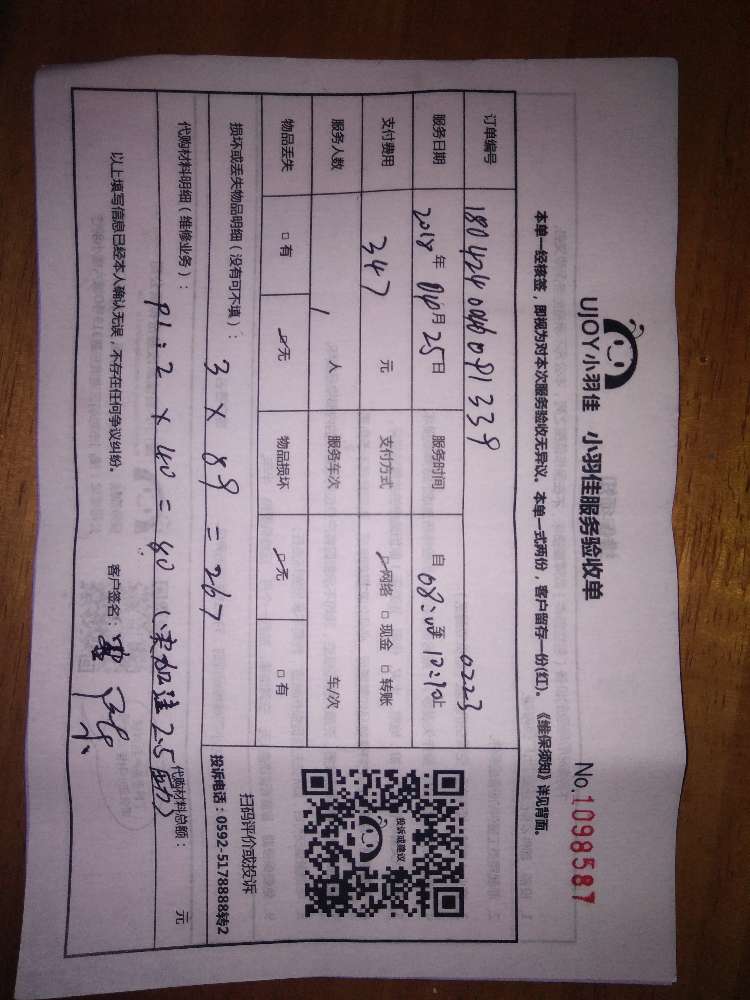 UJOY小羽佳 小羽佳服务验收单
No.1098587
本单一经核签，即视为对本次服务验收无异议。本单一式两份，客户留存一份(红)。《维保须知》详见背面。
订单编号 0223
服务日期 2018年04月25日 服务时间 自08:00至12:10止
支付费用 347 元 支付方式 ☑网络 □现金 □转账
服务人数 1 人 服务车次 车/次
物品丢失 □有 ☑无 物品损坏 ☑无 □有
投诉或建议
扫码评价或投诉
投诉电话：0592-5178888转2
损坏或丢失物品明细（没有可不填）：
3×89=267
代购材料明细（维修业务）：
2×40=80 代购材料总额： 元
以上填写信息已经本人确认无误，不存在任何争议纠纷。 客户签名：